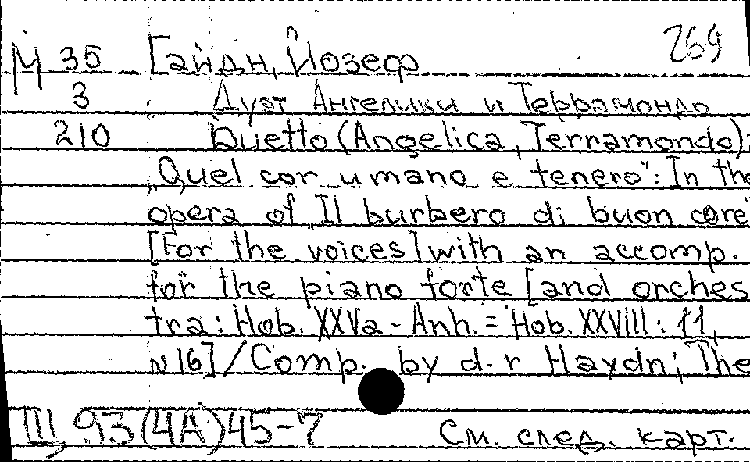 269
М 35 Гайдн, Йозеф
3 Дуэт Ангелики и Террамондо
210 Duetto (Angelica, Terramondo):
„Quel cor umano e tenero": In the
opera of Il burbero di buon core
[For the voices] with an accomp.
for the piano forte [and orches
tra: Hob. XXVa-Anh. = Hob. XXVIII: 11,
N16] / Comp. by d-r Haydn; The
III, 93(4A)45-7 См. след. карт.